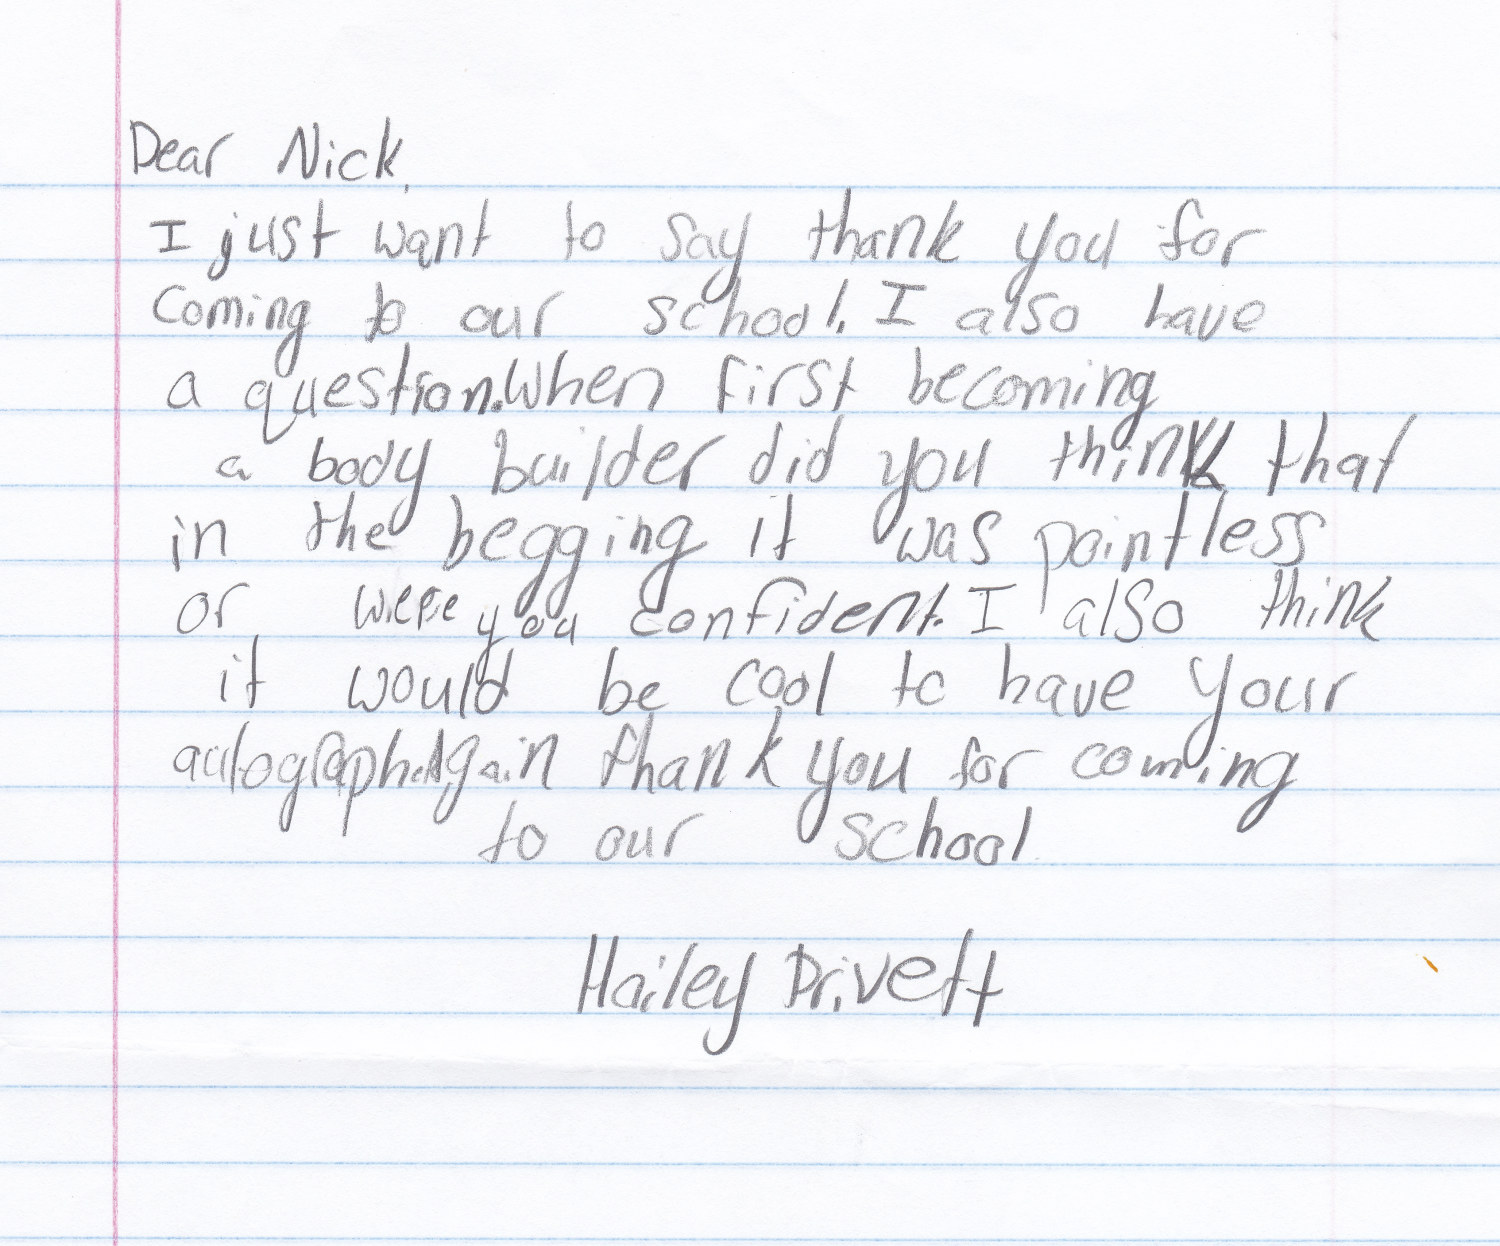 Dear Nick,
I just want to say thank you for
coming to our school. I also have
a question. When first becoming
a body builder did you think that
in the begging it was pointless
or were you confident. I also think
it would be cool to have your
autograph. Again thank you for coming
to our school
Hailey Privett